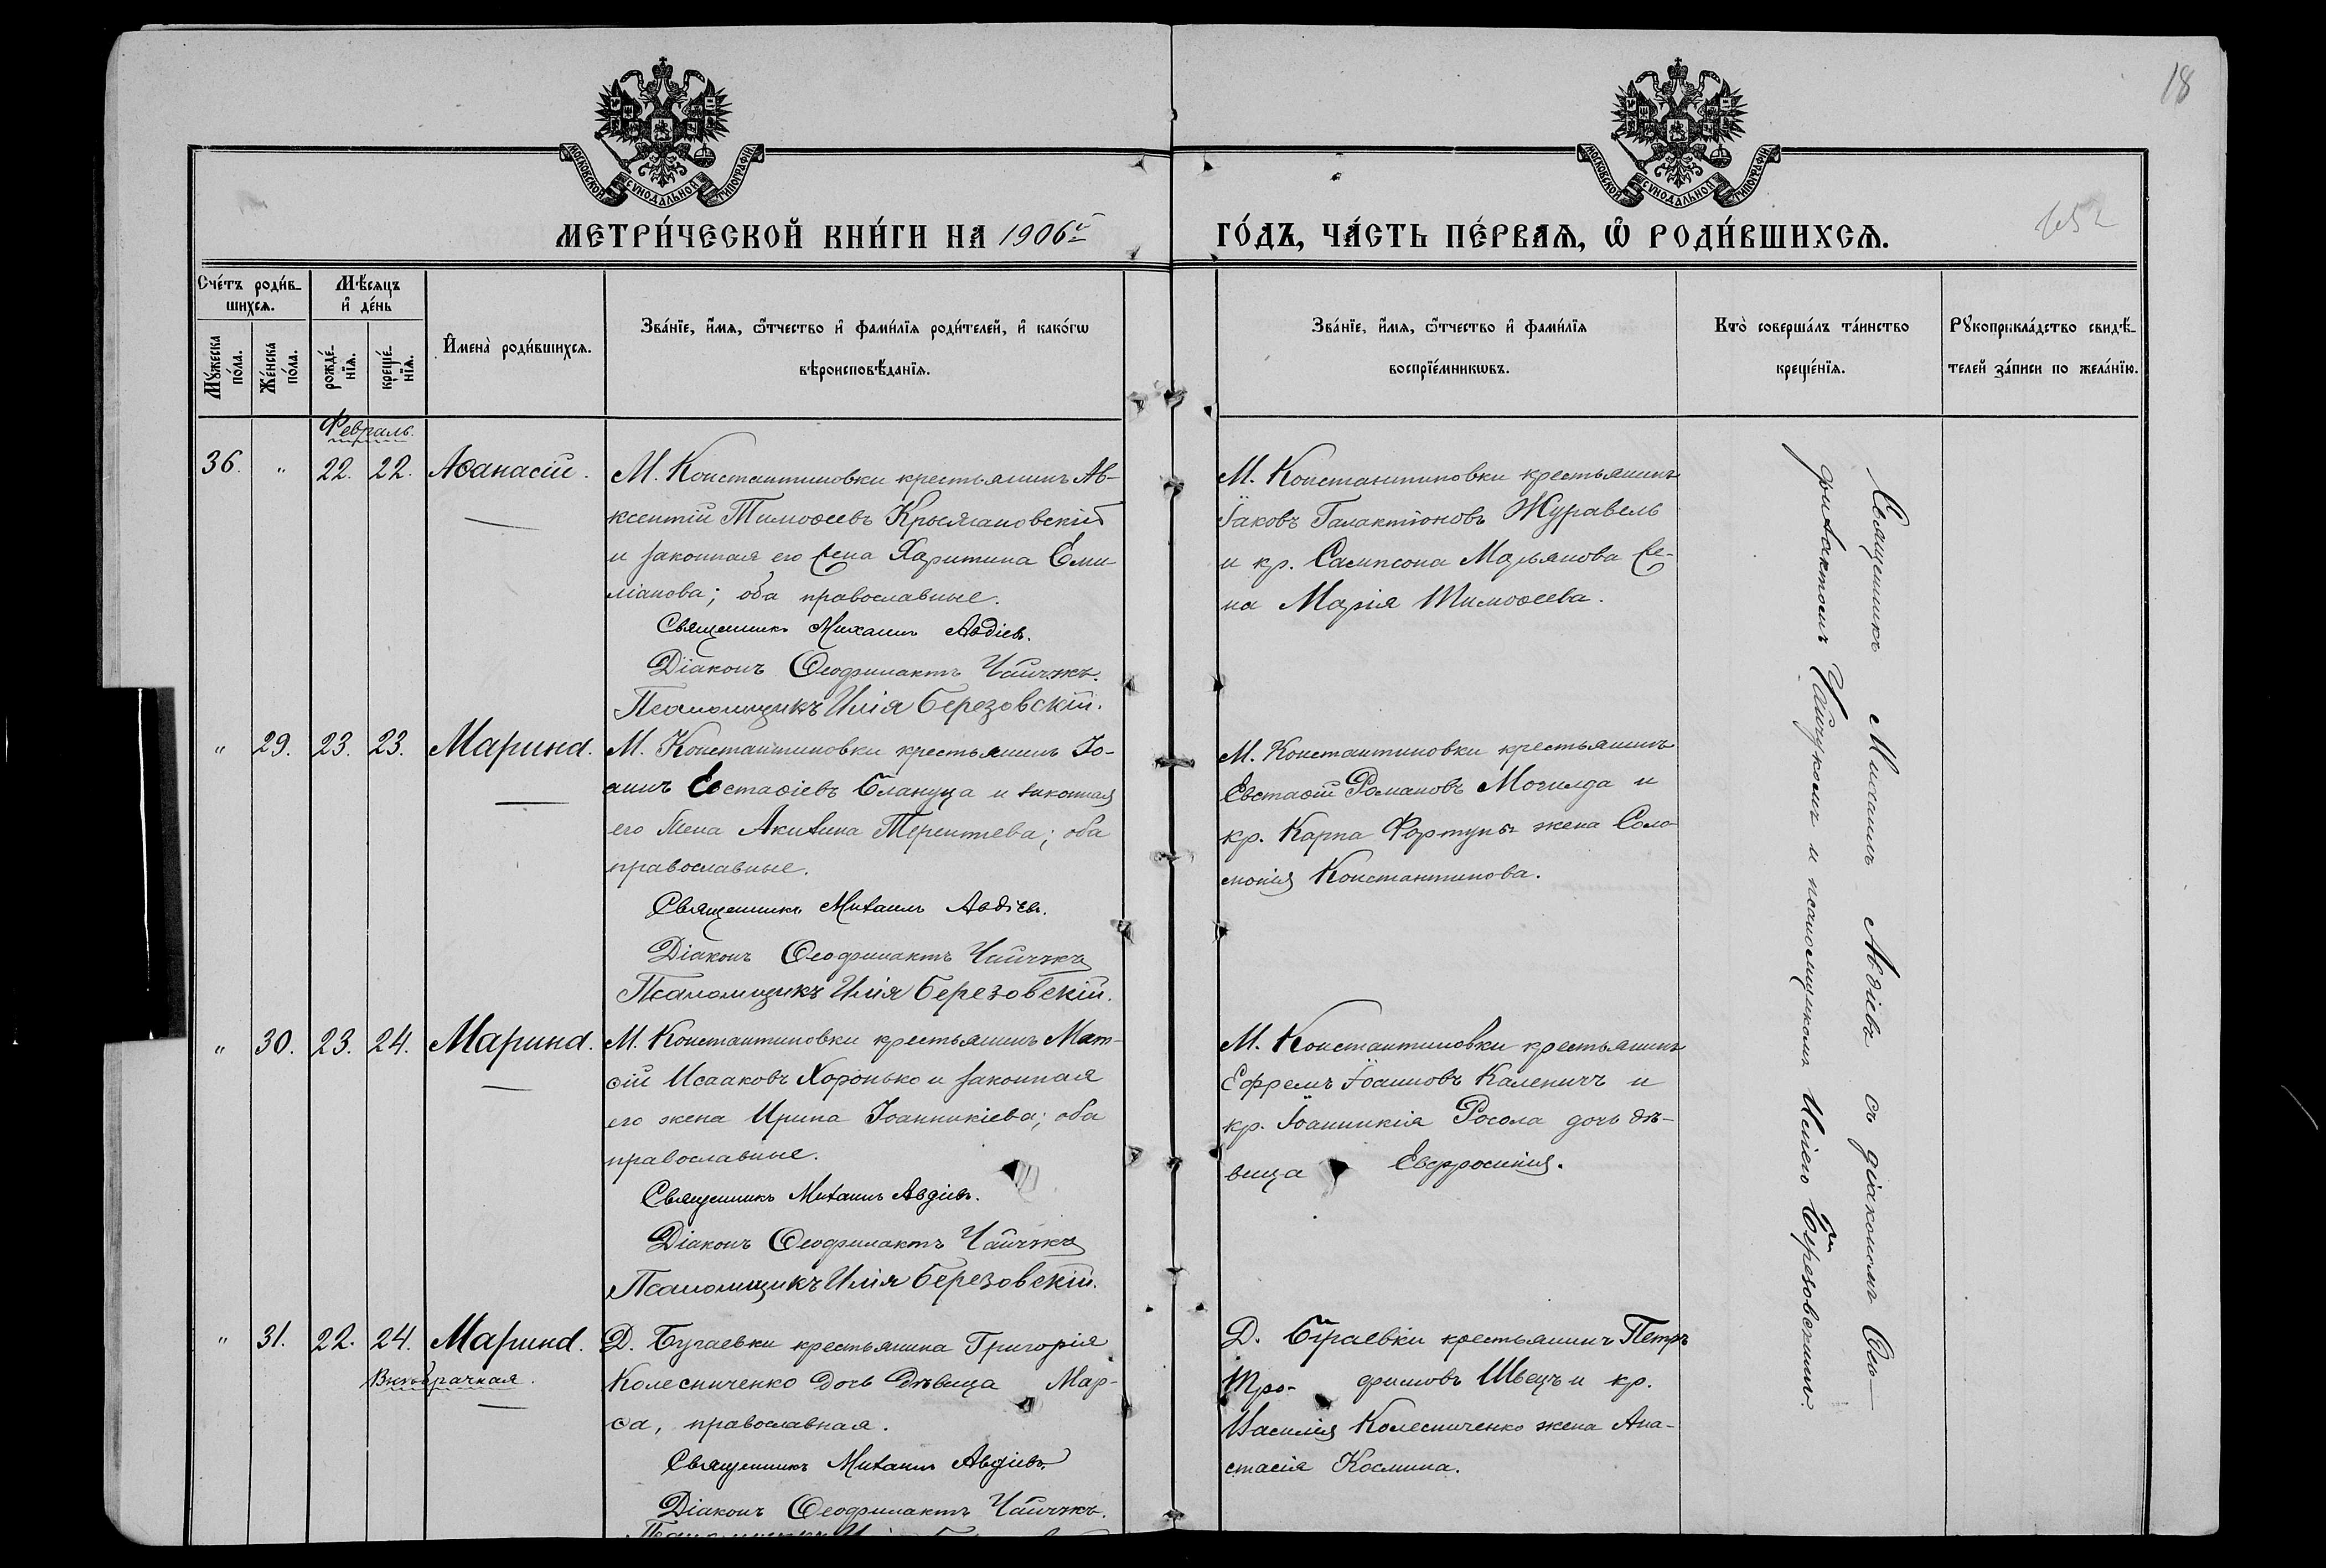 18
МОСКОВСКОЙ СѴНОДАЛЬНОЙ ТИПОГРАФІИ
МОСКОВСКОЙ СѴНОДАЛЬНОЙ ТИПОГРАФІИ
МЕТРИ́ЧЕСКОЙ КНИ́ГИ НА 1906й
ГО́ДЪ, ЧА́СТЬ ПЕ́РВАѦ, Ѡ РОДИ́ВШИХСѦ.
Сче́тъ роди́в-
шихсѧ.
Мѣ́сѧцъ
и҆ де́нь
Мꙋ́жеска
по́ла.
Же́нска
по́ла.
рожде́-
нїѧ.
креще́-
нїѧ.
И҆мена̀ роди́вшихсѧ.
Зва́нїе, и҆́мѧ, ѻ҆́тчество и҆ фами́лїѧ роди́телей, и҆ како́гѡ
вѣроисповѣ́данїѧ.
Зва́нїе, и҆́мѧ, ѻ҆́тчество и҆ фами́лїѧ
воспрїе́мникѡвъ.
Кто̀ соверша́лъ та́инство
креще́нїѧ.
Рꙋкоприкла́дство свидѣ́-
телей за́писи по жела́нїю.
Февраль.
36. " 22. 22. Аѳанасій.
М. Константиновки крестьянинъ Ав-
ксентій Тимоѳеевъ
и законная его жена Харитина Еми-
ліанова; оба православные.
Священникъ Михаилъ Авдіев.
Діаконъ Ѳеофилактъ Чайчукъ.
Псаломщикъ Илія Березовскій.
М. Константиновки крестьянинъ
Іаковъ Галактіоновъ Журавель
и кр. Сампсона Марьянова же-
на Марія Тимоѳеева.
" 29. 23. 23. Марина.
М. Константиновки крестьянинъ Іо-
аннъ Евстаѳіевъ Блануца и законная
его жена Акилина Терентіева; оба
православные.
Священникъ Михаилъ Авдіев.
Діаконъ Ѳеофилактъ Чайчукъ
Псаломщикъ Илія Березовскій.
М. Константиновки крестьянинъ
Евстаѳій Романовъ Могилда и
кр. Карпа Фортуны жена Соло-
монія Константинова.
" 30. 23. 24. Марина.
М. Константиновки крестьянинъ Мат-
ѳій Исааковъ Хоронько и законная
его жена Ирина Іоанникіева; оба
православные.
Священникъ Михаилъ Авдіевъ.
Діаконъ Ѳеофилактъ Чайчукъ
Псаломщикъ Илія Березовскій.
М. Константиновки крестьянинъ
Ефремъ Іоанновъ Каленичъ и
кр. Іоанникія Росола дочь дѣ-
вица Евфросинія.
" 31. 22. 24. Марина.
Внѣбрачная.
Д. Бугаевки крестьянина Григорія
Колесниченко дочь дѣвица Мар-
ѳа, православная.
Священникъ Михаилъ Авдіевъ
Діаконъ Ѳеофилактъ Чайчукъ.
Псаломщикъ Илія
Д. Бугаевки крестьянинъ Петръ
Тро- фимовъ Швецъ и кр.
Василія Колесниченко жена Ана-
стасія Космина.
Священникъ Михаилъ Авдіевъ съ діакономъ Ѳео-
филактомъ Чайчукомъ и псаломщикомъ Иліею Березовскимъ.